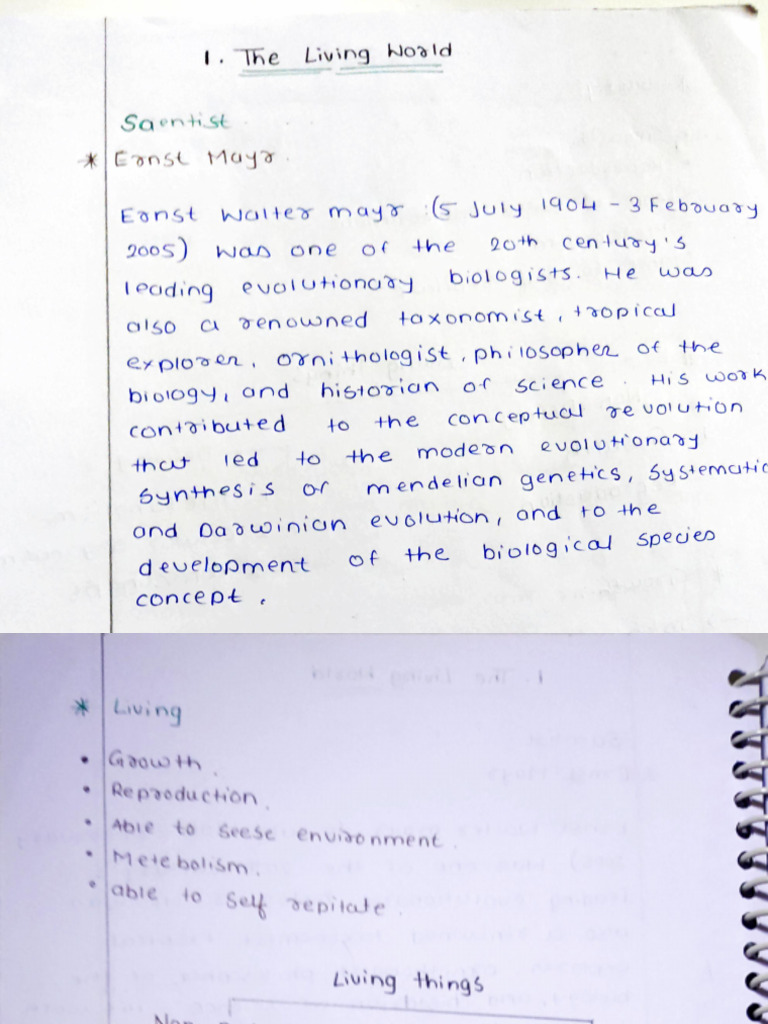 1. The Living World
Saentist
* Ernst Mayr.
Ernst Walter mayr :(5 July 1904 - 3 February
2005) was one of the 20th century's
leading evolutionary biologists. He was
also a renowned taxonomist, tropical
explorer, ornithologist, philosopher of the
biology, and historian of science. His work
contributed to the conceptual revolution
that led to the modern evolutionary
synthesis of mendelian genetics, systematic
and Darwinian evolution, and to the
development of the biological species
concept.
* Living
• Growth.
• Reproduction.
• Able to seese environment.
• Metebolism.
• able to self repilate.
Living things
Non